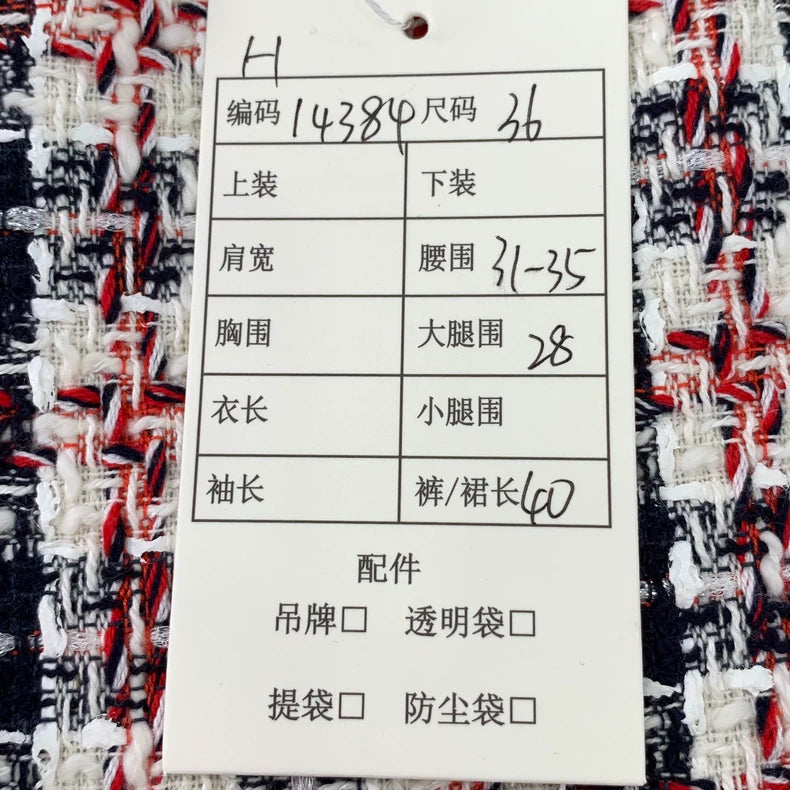 H
编码 14384 尺码 36
上装 下装
肩宽 腰围 31-35
胸围 大腿围 28
衣长 小腿围
袖长 裤/裙长 40
配件
吊牌□ 透明袋□
提袋□ 防尘袋□